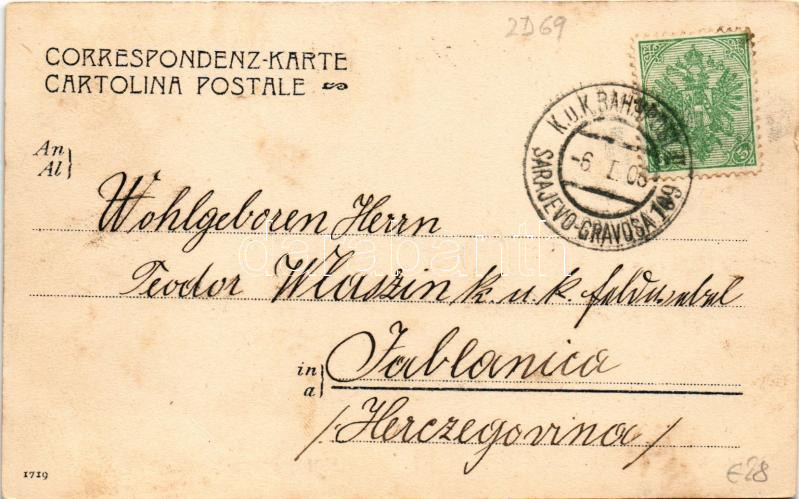 2D69
CORRESPONDENZ-KARTE
CARTOLINA POSTALE
K.u.K.BAHNPOST
-6. I. 05
SARAJEVO-GRAVOSA 109
5
An
Al
Wohlgeboren Herrn
Teodor Wlaszin k. u. k. feldwebel
darabanth
in
a
Jablanica
/Herczegovina/
1719
€28